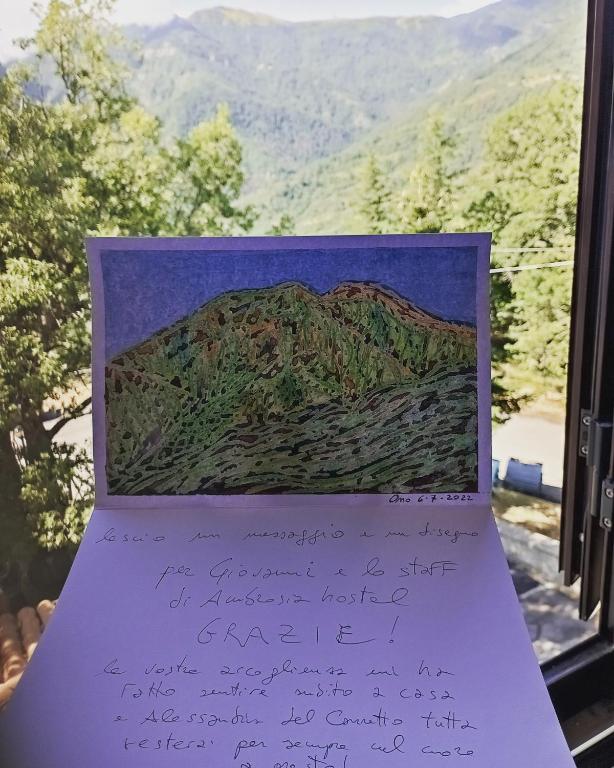 Ono 6-7-2022
lascio un messaggio e un disegno
per Giovanni e lo staff
di Ambrosia hostel
GRAZIE!
la vostra accoglienza mi ha
fatto sentire subito a casa
e Alessandria del Carretto tutta
resterà per sempre nel cuore
a presto!